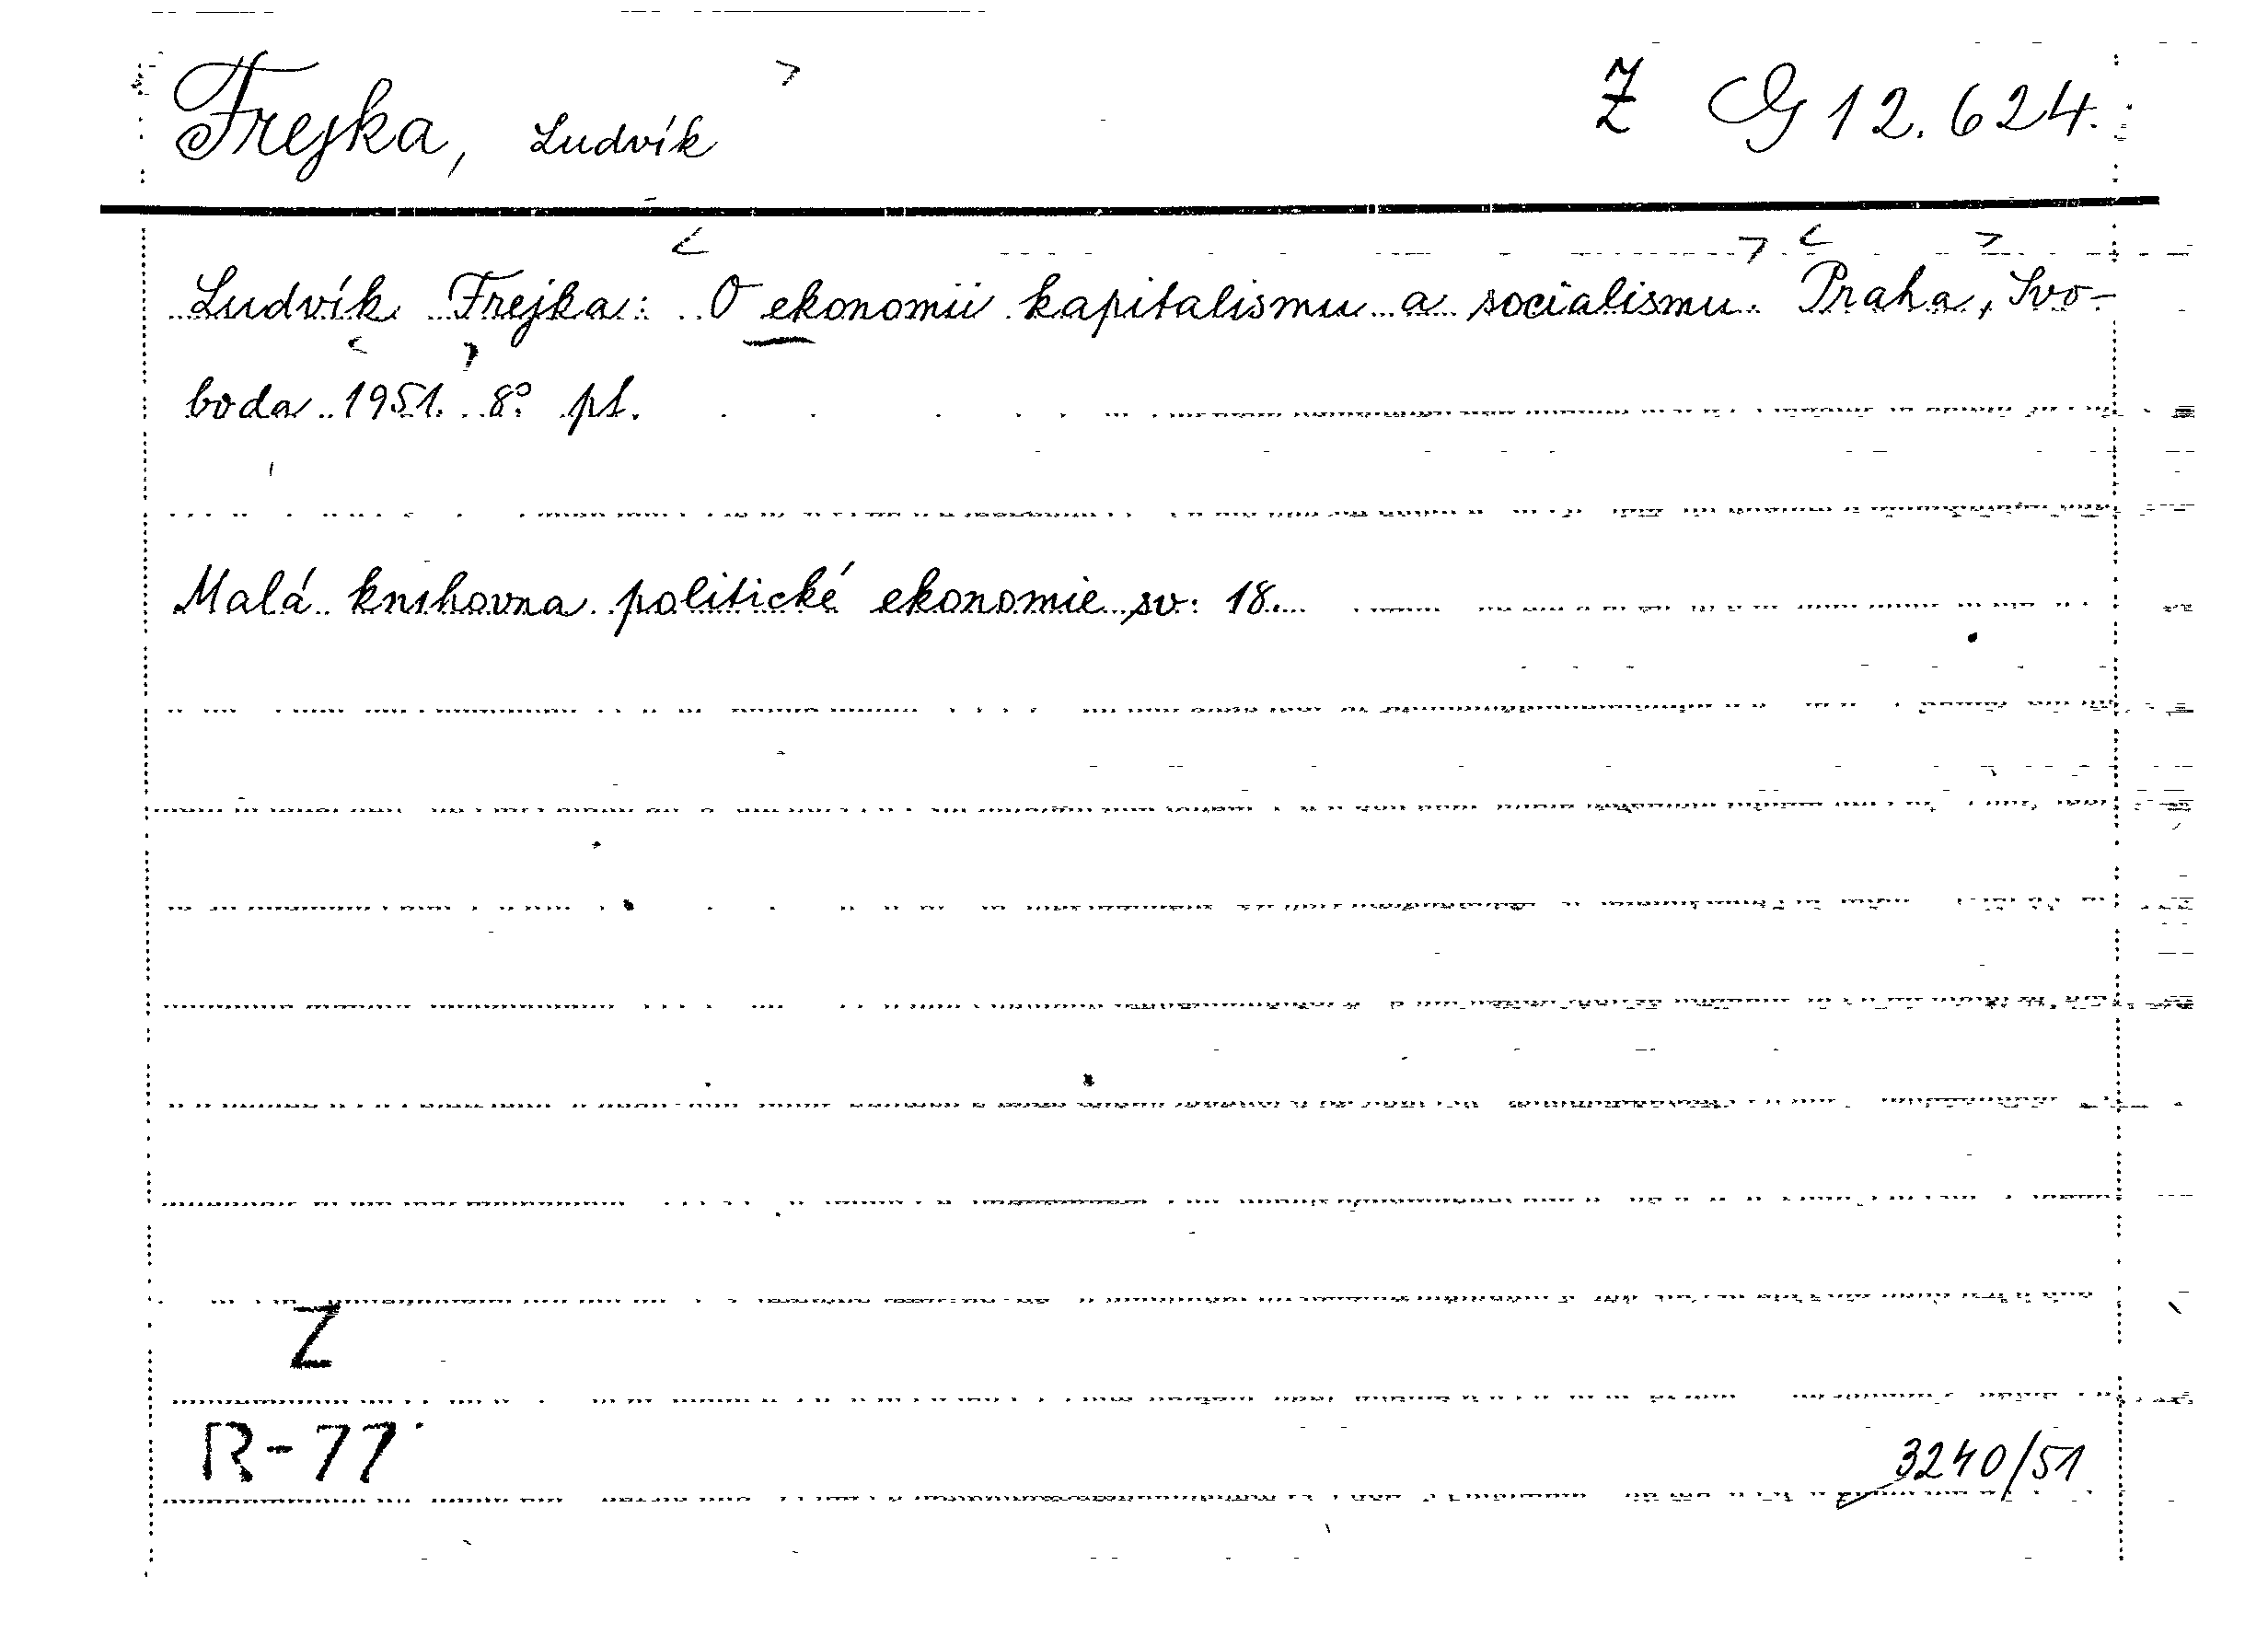 Frejka, Ludvík Z G 12.624.
Ludvík Frejka: O ekonomii kapitalismu a socialismu. Praha, Svo-
boda 1951. 8° pl.
Malá knihovna politické ekonomie sv. 18.
Z
R-77
3240/51